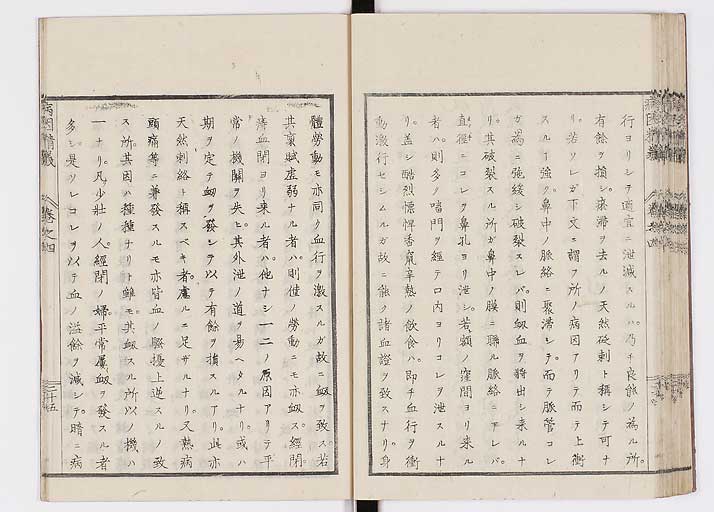 行ヨリシテ適宜ニ泄減スルハ乃チ良能ノ為ル所
有餘ヲ損シ瘀滞ヲ去ルノ天然砭刺ト稱シテ可ナ
リ若ソレガ下文ニ謂フ所ノ病因アリテ而テ上衝
スルヿ強ク鼻中ノ脈絡ニ聚滞シテ而テ脈管コレ
ガ為ニ弛緩シ破裂スレバ則衂血ヲ 出シ来ルナ
リ其破裂スル所ガ鼻中ノ膜ニ聯ル脈絡ニテレバ
直徑ニコレヲ鼻孔ヨリ泄シ若額ノ窪間ヨリ来ル
者ハ則多ノ 門ヲ經テ口内ヨリコレヲ泄スルナ
リ蓋シ酷烈慓悍香竄辛熱ノ飲食ハ即チ血行ヲ衝
動激行セシムルガ故ニ能ク諸血證ヲ致スナリ身
體勞動モ亦同ク血行ヲ激スルガ故ニ衂ヲ致ス若
其禀賦虚弱ナル者ハ則僅ノ勞動ニモ亦衂ス經閉
痔血閉ヨリ来ル者ハ他ナシ一二ノ原因アリテ平
常ノ機關ヲ失ヒ其外泄ノ道ヲ易ヘタルナリ或ハ
期ヲ定テ衂ヲ發シテ以テ有餘ヲ損スルアリ此亦
天然刺絡ト稱スベキ者慮ルニ足ザルナリ又熱病
頭痛等ニ兼發スルモ亦皆血ノ騷擾上逆スルノ致
ス所其因ハ種種ナリト雖モ其衂スル所以ノ機ハ
一ナリ凡少壮ノ人經閉ノ婦平常屢衂ヲ發スル者
多シ是ソレコレヲ以テ血ノ溢餘ヲ減シテ暗ニ病
病因精義
巻之四
二十五